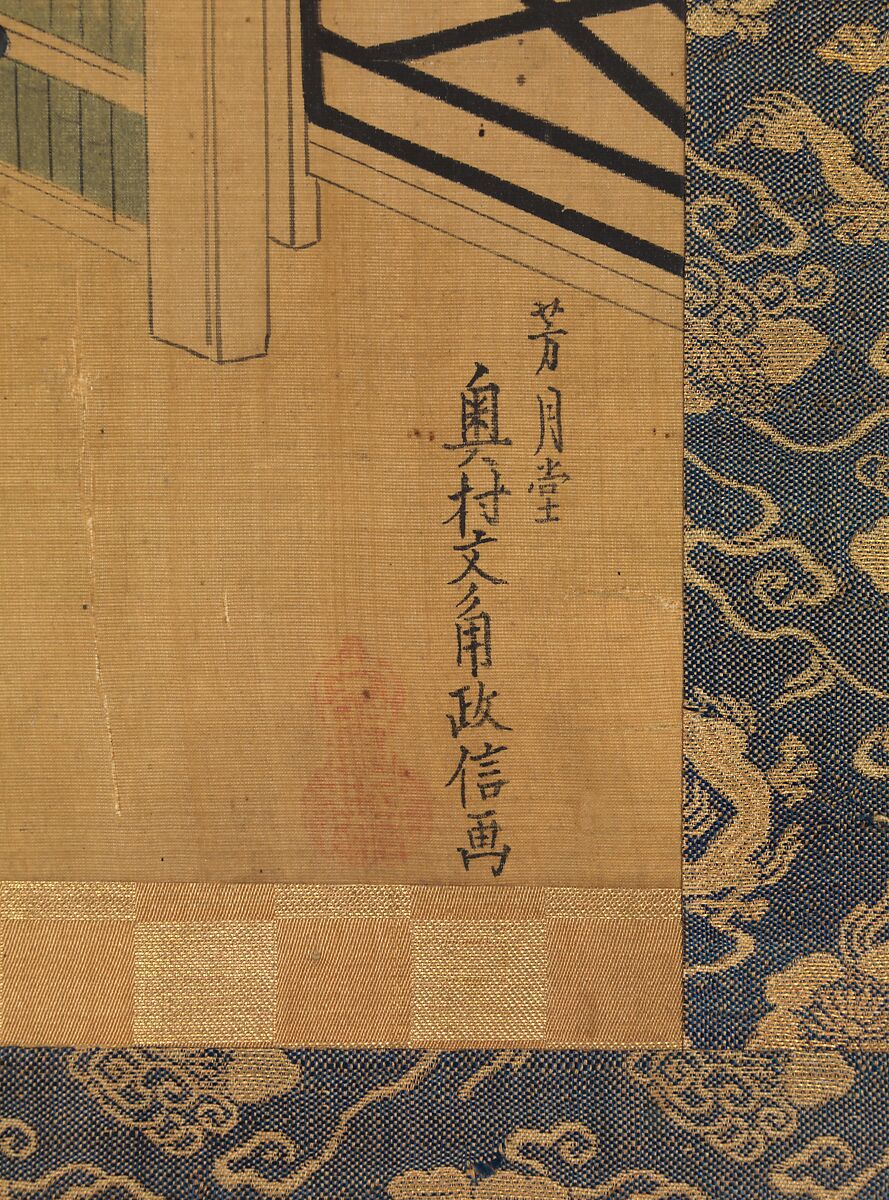 芳月堂
奥村文角政信画